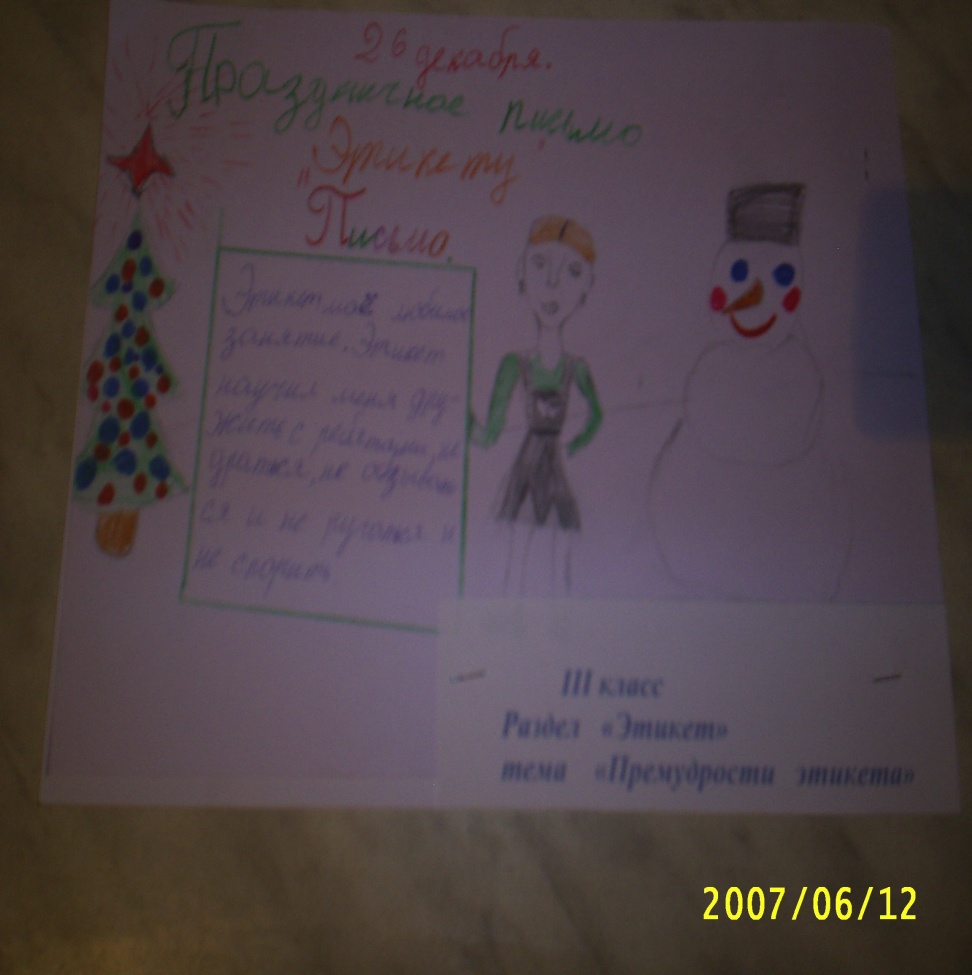 26 декабря.
Праздничное письмо
"Этикету"
Письмо.
Этикет моё любимое
занятие. Этикет
научил меня дру-
жить с ребятами, не
драться, не обзывать
ся и не ругаться и
не спорить.
III класс
Раздел «Этикет»
тема «Премудрости этикета»
2007/06/12